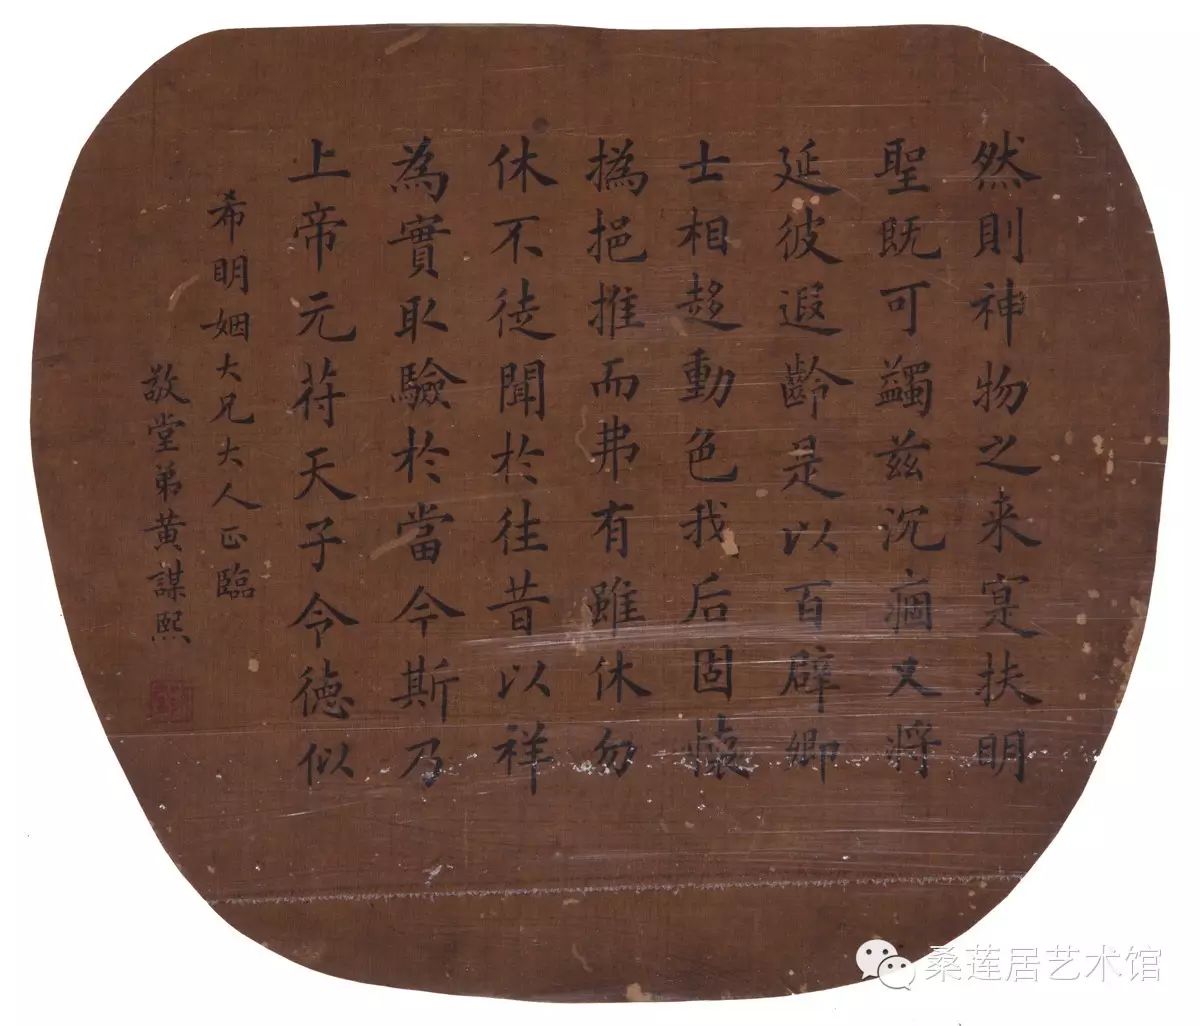 然則神物之来寔扶明
聖既可蠲兹沉痼又将
延彼遐齡是以百辟卿
士相趍動色我后固懷
撝挹推而弗有雖休勿
休不徒聞於往昔以祥
為實取驗於當今斯乃
上帝元苻天子令德似
希明姻大兄大人正臨
敬堂弟黄謀熙
桑莲居艺术馆